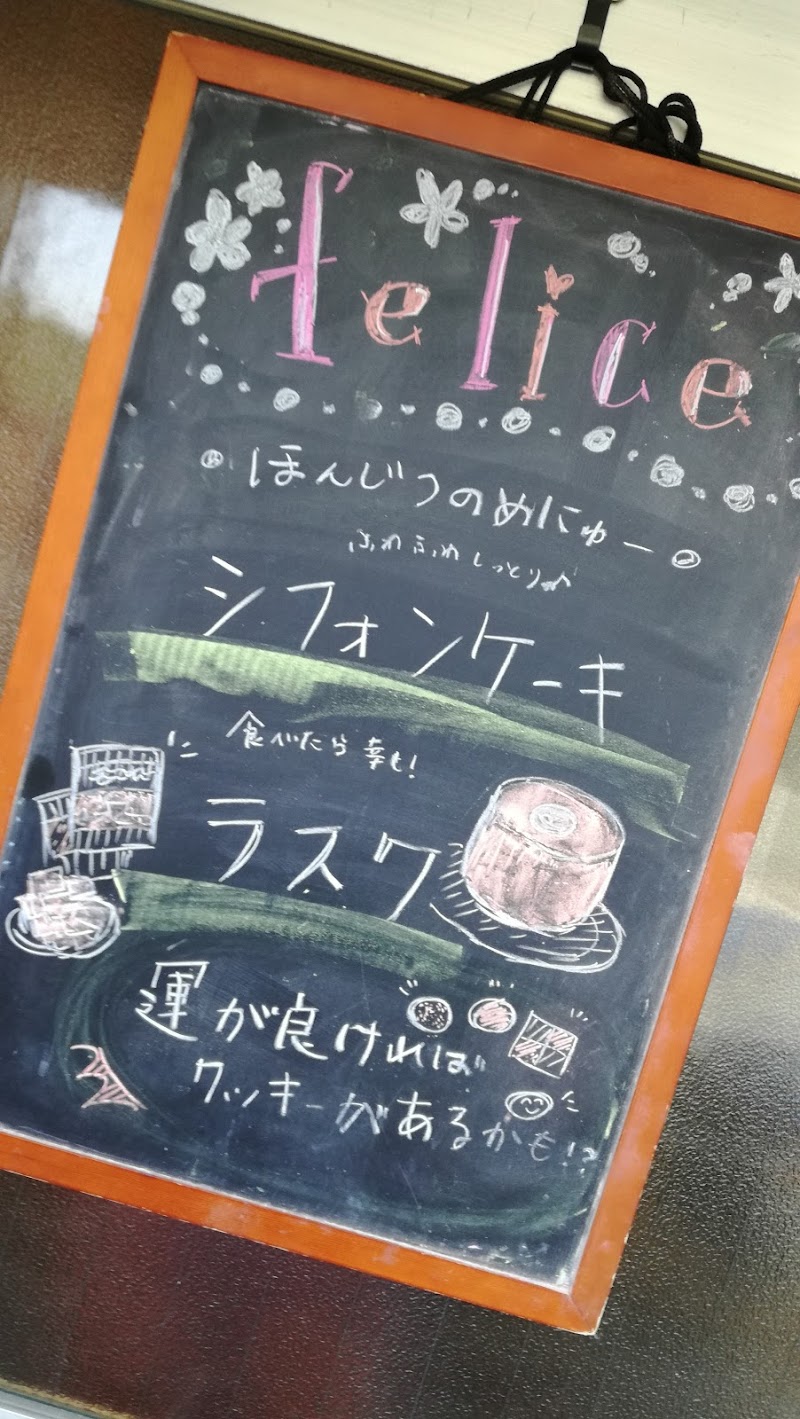 felice
ほんじつのめにゅー
ふわふわしっとり♪
シフォンケーキ
食べたら幸せ!
ラスク
運が良ければ
クッキーがあるかも!?